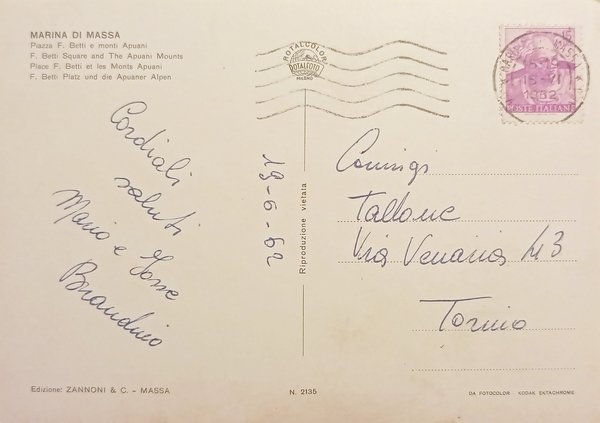 MARINA DI MASSA
Piazza F. Betti e monti Apuani
F. Betti Square and The Apuani Mounts
Place F. Betti et les Monts Apuani
F. Betti Platz und die Apuaner Alpen
ROTALCOLOR
ROTALFOTO
MILANO
15
1962
POSTE ITALIANE
Cordiali
saluti
Mario e
Barandino
19-6-62
Riproduzione vietata
Coniugi
Tallone
Via Venaria 43
Torino
Edizione: ZANNONI & C. - MASSA
N. 2135
DA FOTOCOLOR - KODAK EKTACHROME